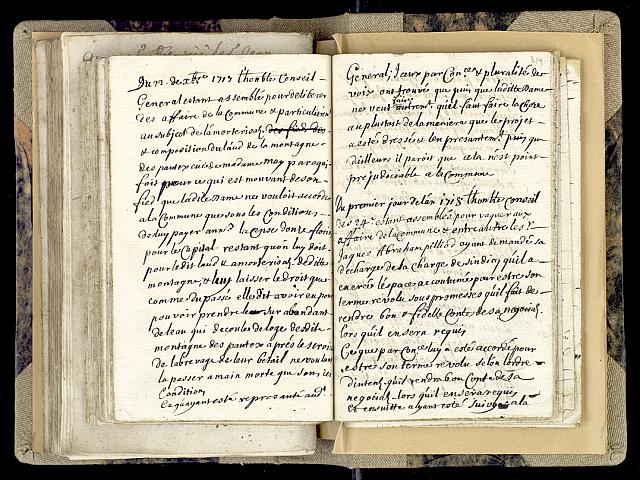 Du 22. de xbre 1717 lhonble Conseil
General estant assemblé pour deliberer
des affaire de la Commune & particulier
au subject de lamorterisaõ, des fieds des
& composition du laud de la montagne
des pautex euë de madame may, paraqui
fait pour ce qui est mouvant de son
fied que laditte Dame ne vouloit accorde
a la Commune que sous les Conditions
de luy payer annt la Cense donze florin
pour le Capital restant quon luy doit
pour ledit laud & amorterisaõ, de ditte
montagne, & luy laisser le droit que
comme du passé elle dit avoir eu pour
pouvoir prendre le sur abandant
de leau qui decoule de loge desditte
montagne des pautex apres le servir
de labrevage de leur betail ne voulant
la passer a main morte que sous ces
Condition,
Ce quayant esté representé audt
General, Iceux par Conce & pluralité des
voix ont trouvé que puis que laditte Dame
ne veut faire autremt quil faut faire la Chose
au plustost de la maniere que le projet
a esté dressé & leu presentemt puis que
dailleurs il paroit que cela nest point
prejudiciable a la Commune
Du premier jour de lan 1718 lhonble Conseil
des 24e estant assemblés pour vaquer aux
affaire de la Commune & entre autre le sr
Jaques Abraham pilliod ayant demandé sa
decharge de la charge de sindicq quil a
exercée lespace acoutumé pour estre son
terme revolu sous promesses quil fait de
rendres bon & fidelle Conte de sa negotiaõ,
lors quil en sera requis
Ce que par Conce luy a esté accordé pour
estre son terme revolu selon lordre
dinten, quil rendra bon Conte de sa
negotiaõ, lors quil en sera requis
Et ensuitte ayant esté suivy a la